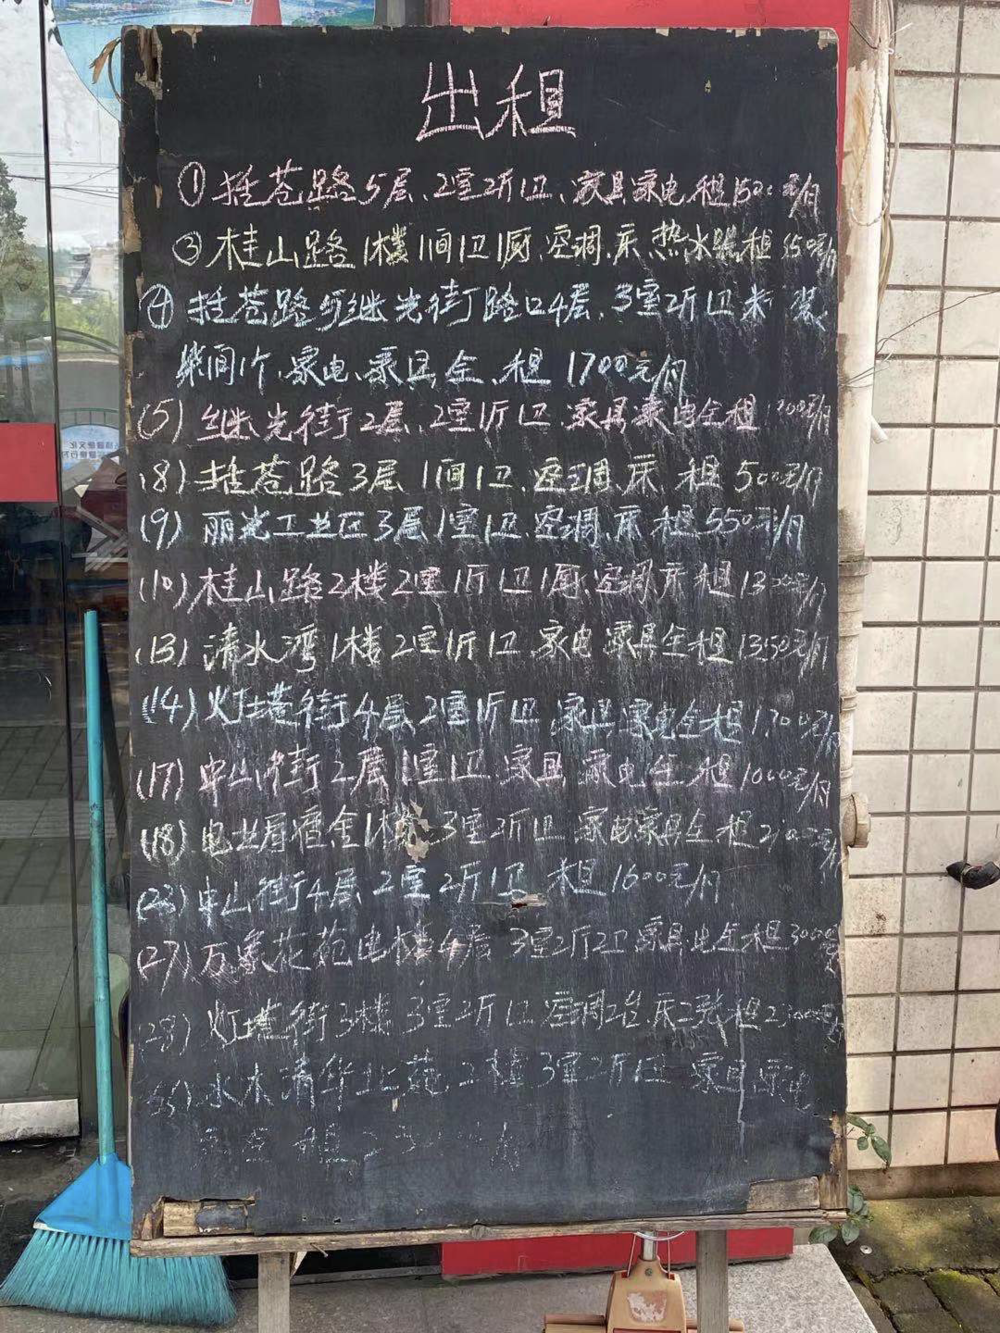 出租
① 括苍路5层、2室2厅1卫、家具家电租1500元/月
③ 桂山路1楼1间1卫1厨、空调、床、热水器租550元/月
④ 括苍路与继光街路口4层、3室2厅1卫 柴
间1个、家电、家具全、租 1700元/月
(5) 继光街2层、2室1厅1卫 家具家电全租
(8) 括苍路3层 1间1卫、空调、床 租500元/月
(9) 丽光工业区3层1室1卫、空调、床 租550元/月
(10) 桂山路2楼2室1厅1卫1厨、空调、床 租1300元/月
(13) 清水湾1楼2室1厅1卫 家电家具全租1350元/月
(14) 灯塔街4层2室1厅1卫 家具家电全租1700元/月
(17) 中山街2层1室1卫 家具 家电全租1000元/月
(18) 电业局宿舍1楼 3室2厅1卫 家电家具全租
(23) 中山街4层2室2厅1卫 租1600元/月
(27) 万象花苑电梯 3室2厅2卫 家具电全租3000元
(28) 灯塔街3楼 3室2厅1卫 空调2台床2张租
水木清华北苑2楼3室2厅1卫 家具家电
租